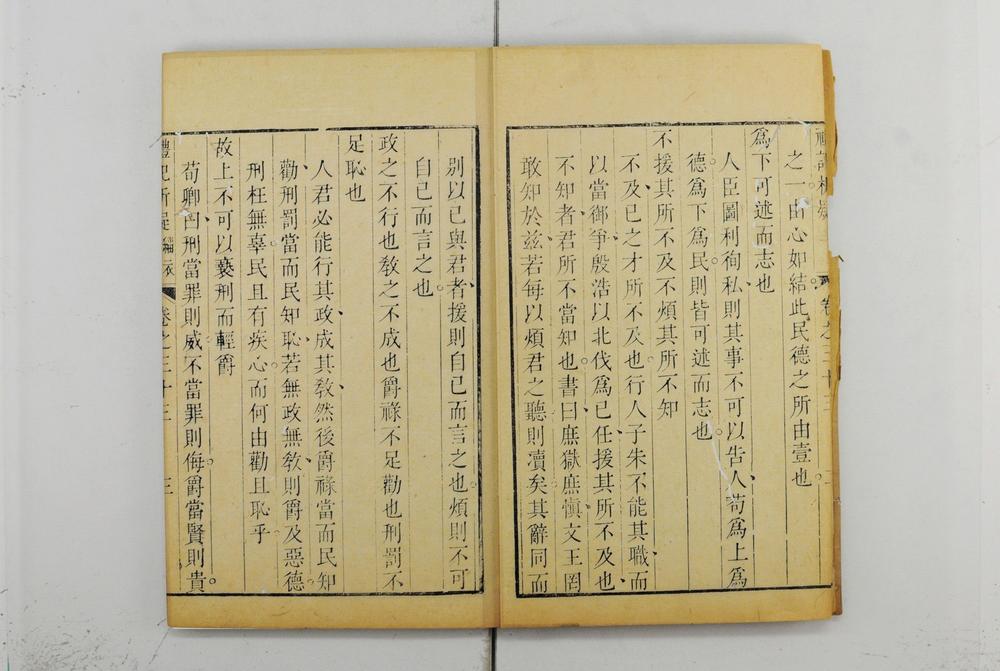 之一由心如結此民德之所由壹也
爲下可述而志也
人臣圖利徇私則其事不可以告人苟爲上爲
德爲下爲民則皆可述而志也
不援其所不及不煩其所不知
不及已之才所不及也行人子朱不能其職而
以當御爭殷浩以北伐爲已任援其所不及也
不知者君所不當知也書曰庶獄庶愼文王罔
敢知於兹若每以煩君之聽則瀆矣其辭同而
別以已與君者援則自已而言之也煩則不可
自已而言之也
政之不行也敎之不成也爵祿不足勸也刑罰不
足恥也
人君必能行其政成其敎然後爵祿當而民知
勸刑罰當而民知恥若無政無敎則爵及惡德
刑枉無辜民且有疾心而何由勸且恥乎
故上不可以褻刑而輕爵
荀卿曰刑當罪則威不當罪則侮爵當賢則貴
卷之三十三 三